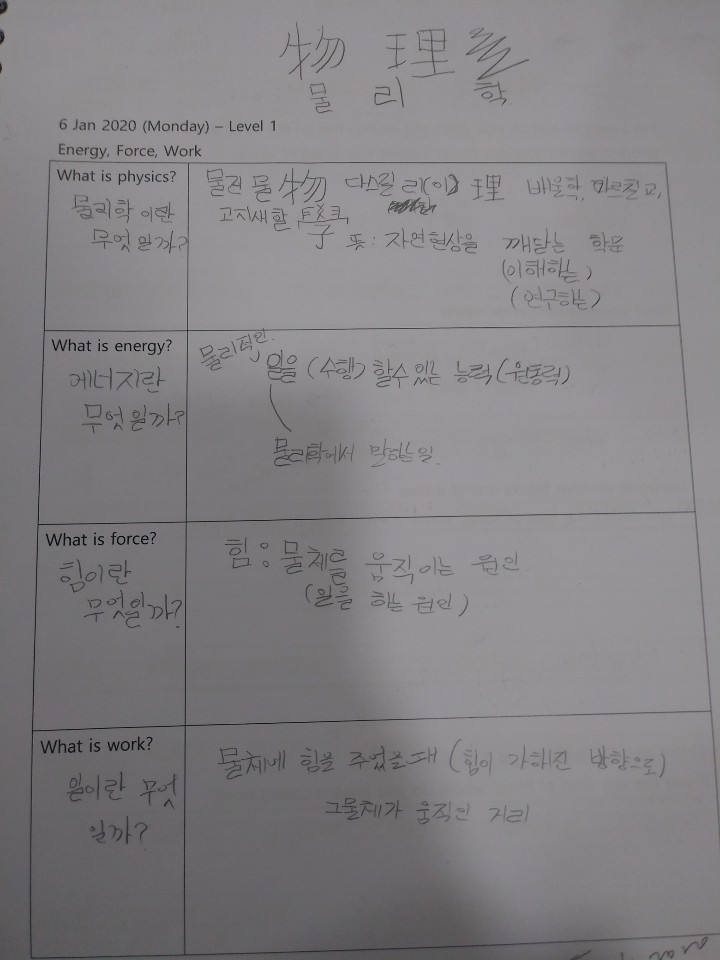 物 理
물 리 학
6 Jan 2020 (Monday) – Level 1
Energy, Force, Work
What is physics?
물리학 이란
무엇 일까?
물건 물 物 다스릴 리(이) 理 배울 학, 가르칠 교,
고지새 할 學
뜻: 자연현상을 깨닫는 학문
(이해하는)
(연구하는)
What is energy?
에너지란
무엇 일까?
물리적인
일을 (수행) 할수 있는 능력 (원동력)
물리학에서 말하는 일
What is force?
힘이란
무엇일까?
힘: 물체를 움직이는 원인
(일을 하는 원인)
What is work?
일이란 무엇
일까?
물체에 힘을 주었을때 (힘이 가해진 방향으로)
그물체가 움직인 거리